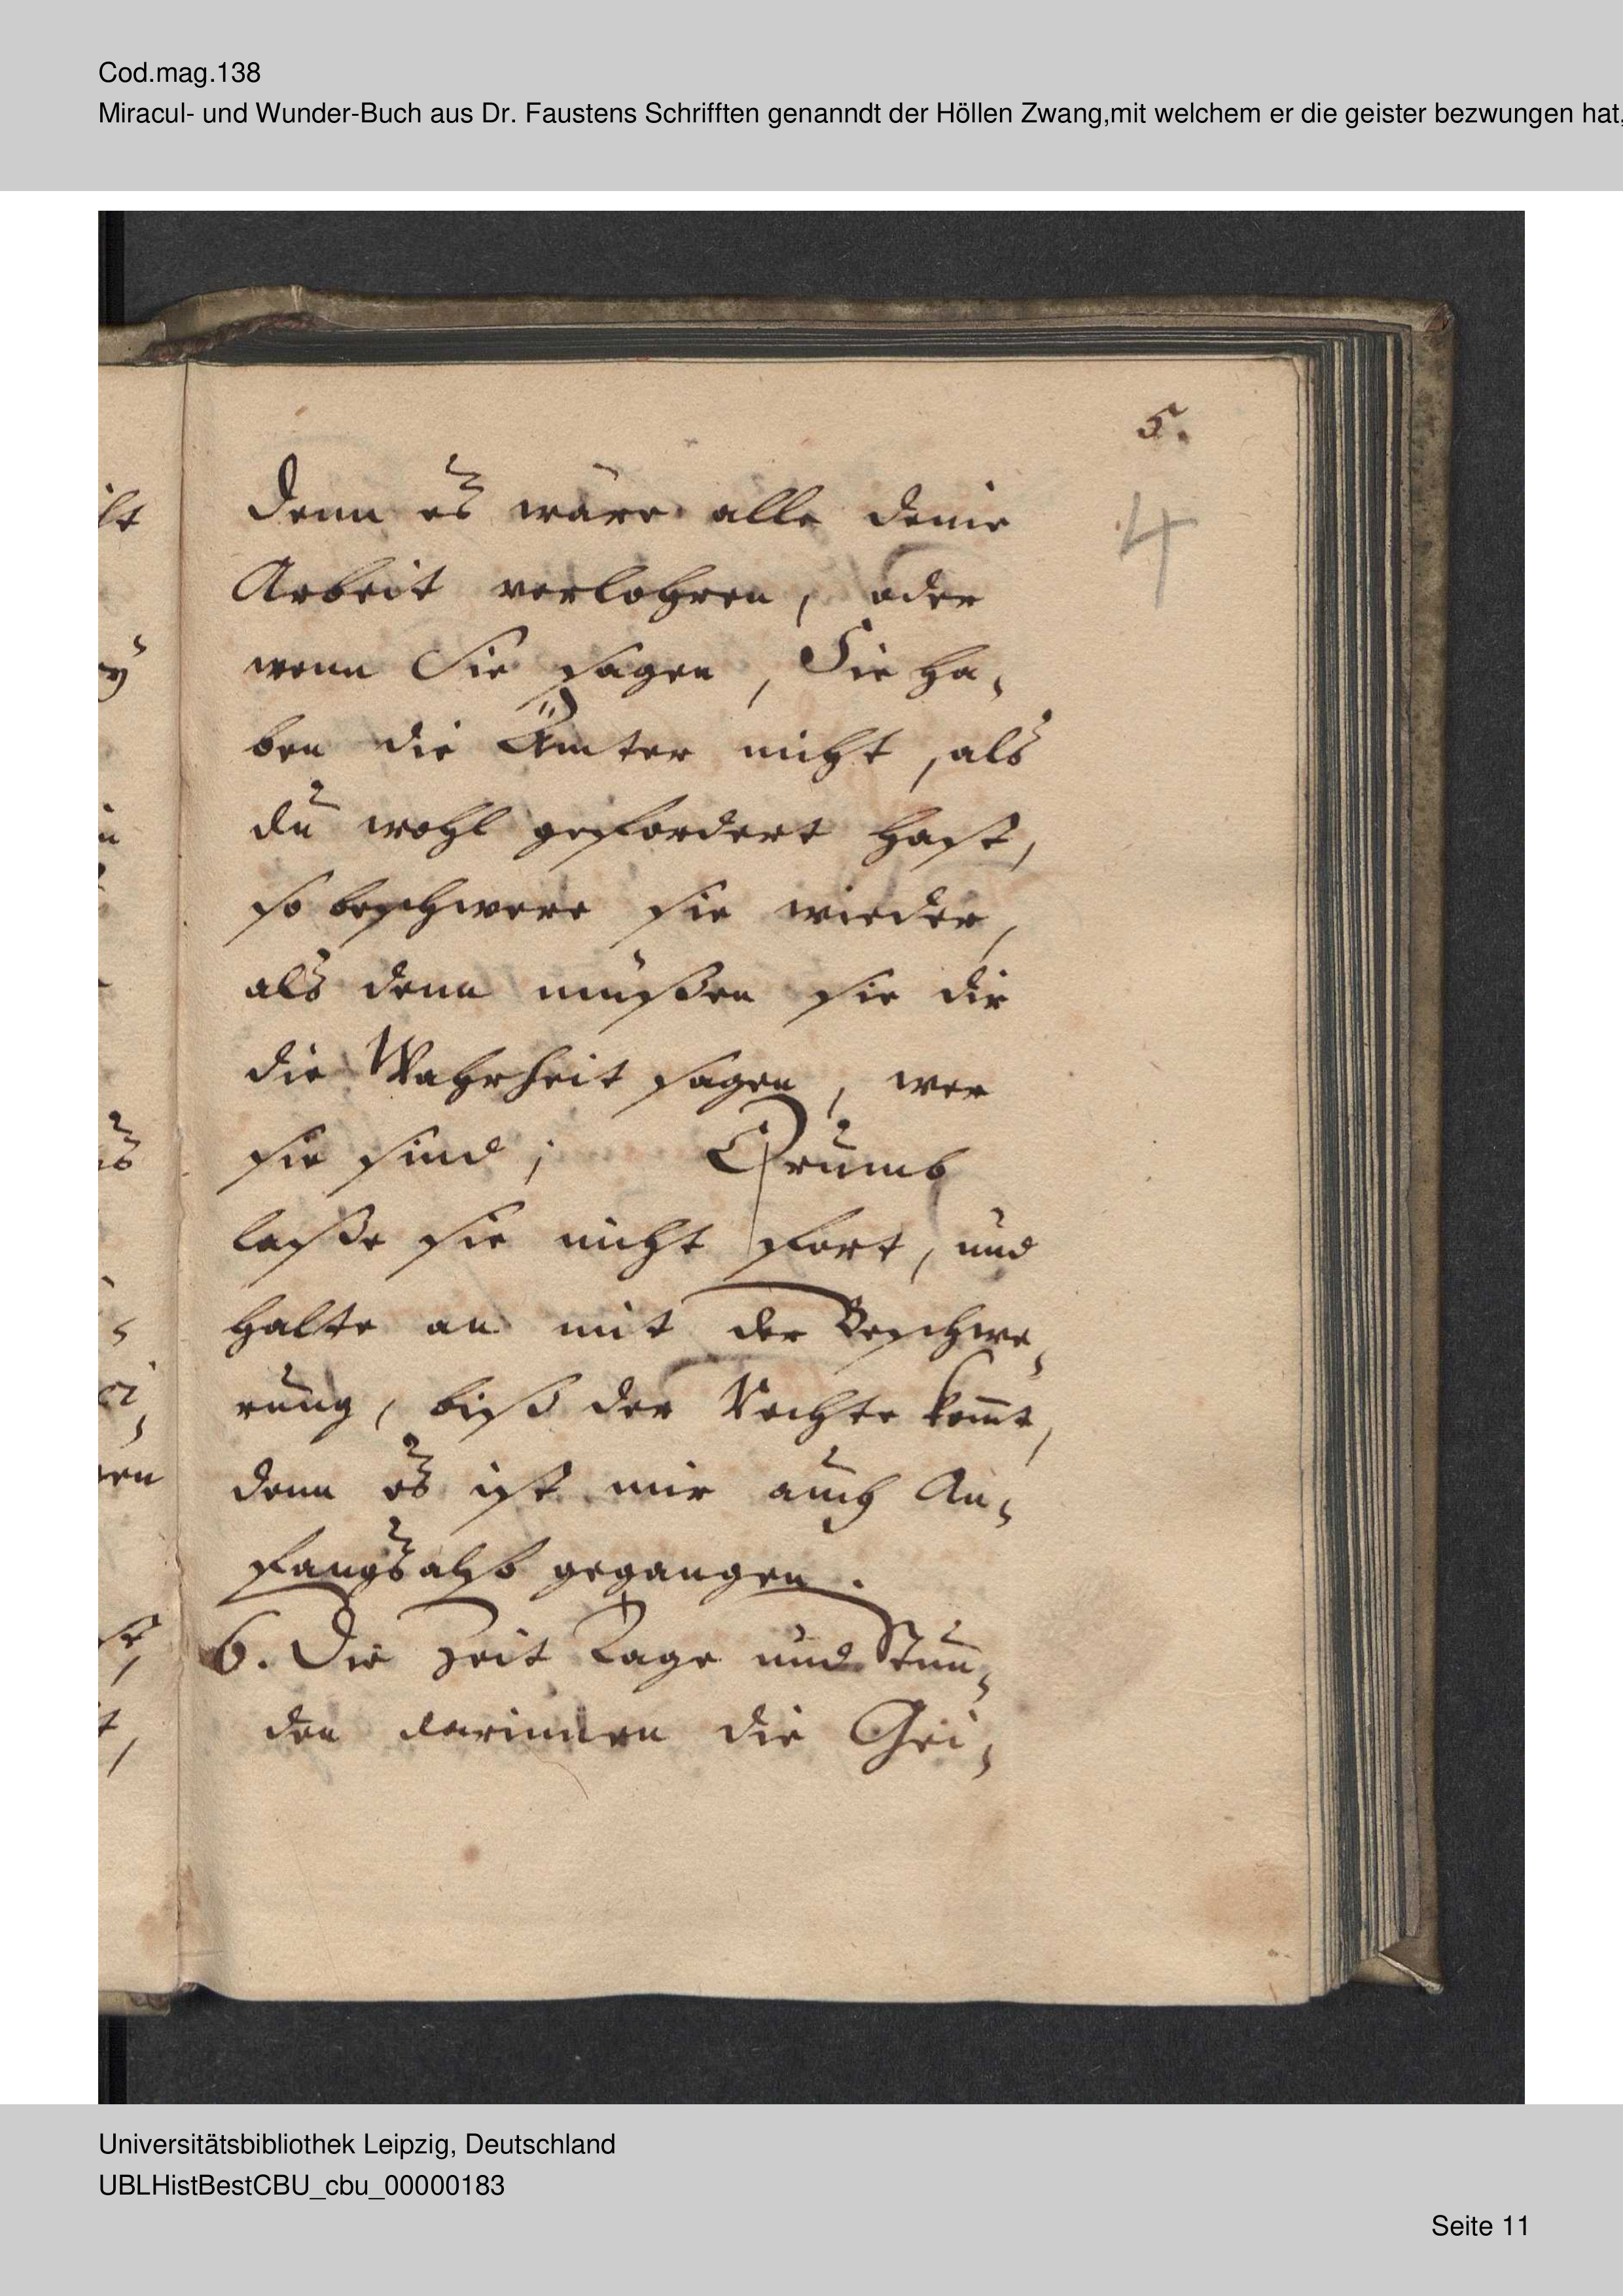 Cod.mag.138
Miracul- und Wunder-Buch aus Dr. Faustens Schrifften genanndt der Höllen Zwang,mit welchem er die geister bezwungen hat,
5.
4
denn es wäre alle deine
Arbeit verlohren, oder
wenn Sie sagen, Sie ha-
ben die Ämter nicht, als
du wohl gefordert hast,
so beschwere sie wieder,
als denn müßen sie dir
die Wahrheit sagen, wer
sie sind; Drumb
laße sie nicht fort, und
halte an mit der Beschwe-
rung, biß der Rechte kom̅t,
denn es ist mir auch An-
fangs also gegangen.
6. Die Zeit Tage und Stun-
den darinnen die Gei-
Universitätsbibliothek Leipzig, Deutschland
UBLHistBestCBU_cbu_00000183
Seite 11